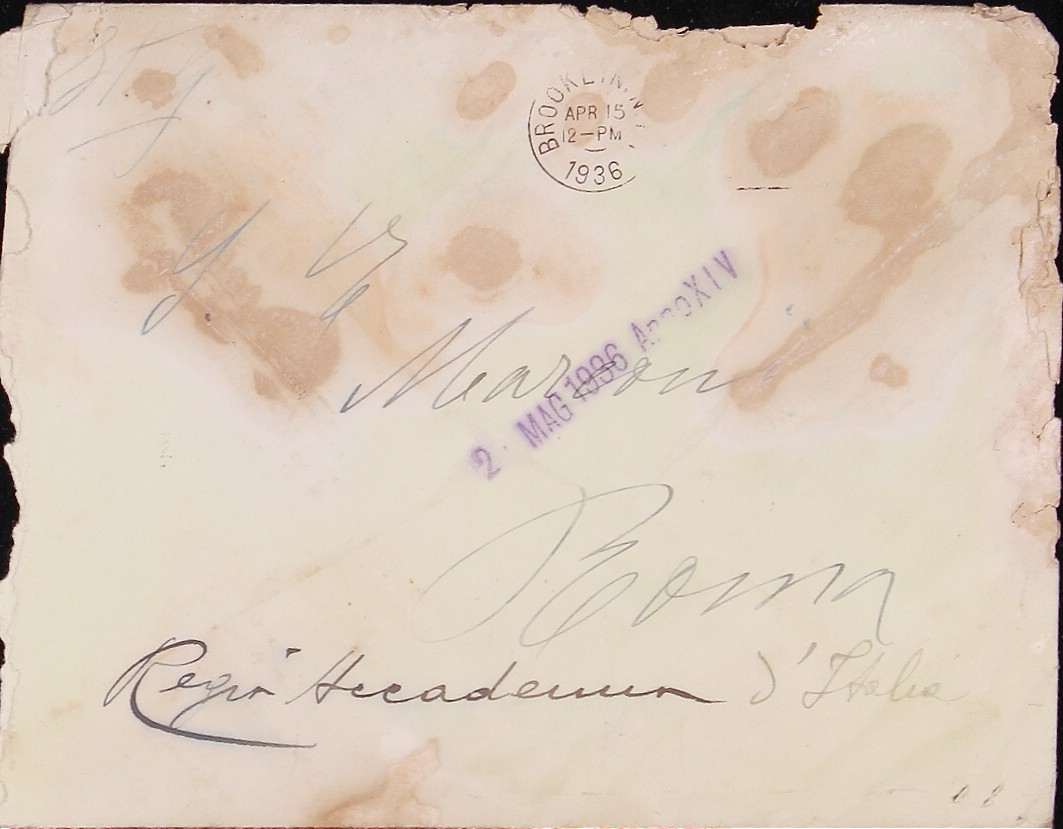 BROOKLYN, N.Y.
APR 15
12-PM
1936
G.
Marconi
2 · MAG 1936 Anno XIV
Roma
Regia Accademia d'Italia